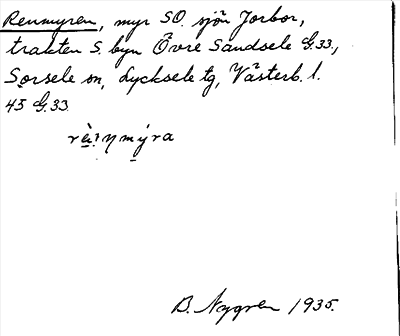 Renmyren, myr SO. sjön Jorbor,
trakten S. byn Övre Sandsele G.33,
Sorsele sn, Lycksele tg, Västerb. l.
45 G.33
B. Nygren 1935.